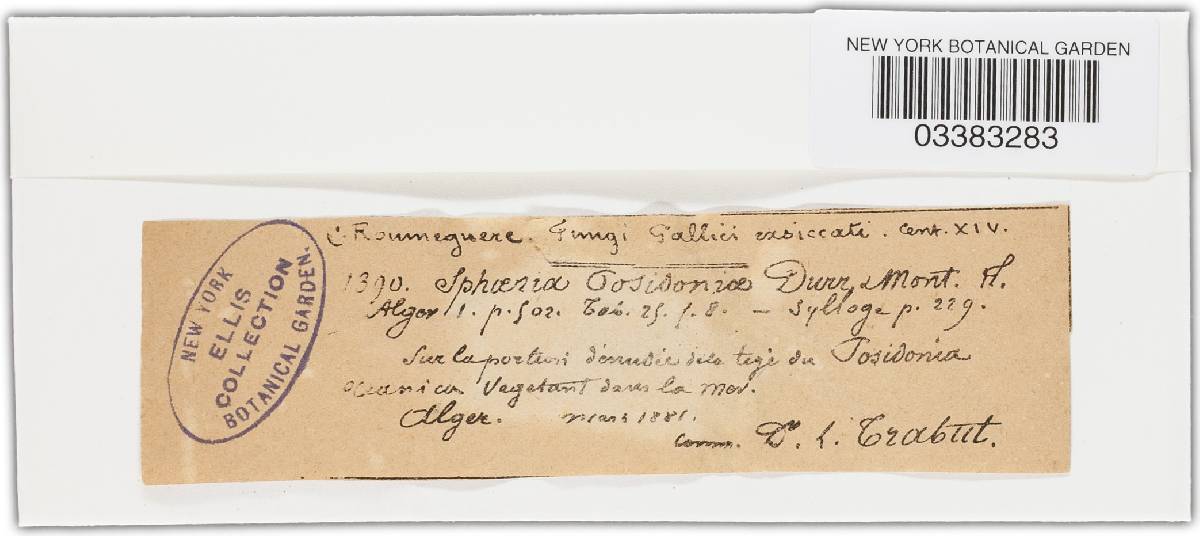 NEW YORK BOTANICAL GARDEN
03383283
C. Roumeguere. Fungi Gallici exsiccati. Cent. XIV.
1390. Sphæria Posidoniæ Durr. & Mont. fl.
Alger 1. p. 502. Tab. 25. f. 8. — Sylloge p. 229.
Sur la portion dénudée de la tige du Posidonia
oceanica Vegetant dans la mer.
Alger. mars 1881.
comm. Dr. L. Trabut.
NEW YORK
ELLIS
COLLECTION
BOTANICAL GARDEN.